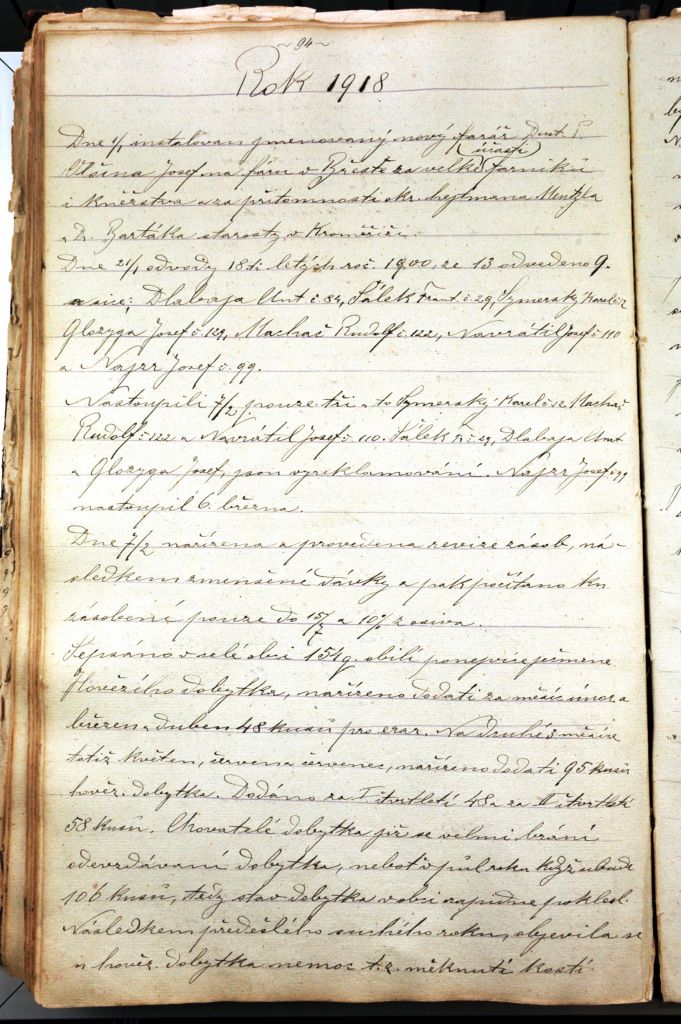 ~ 94 ~
Rok 1918
Dne 1/1 instalovan jmenovaný nový farář Dust. P.
Josef na faru v Břestě za velké (účasti) farniků
i kněžstva a za přitomnosti okr. hejtmana Mentzla
a Dr. Bartáka starosty v Kroměřiži.
Dne 21/1 odvody 18ti letých roč. 1900, ze 13 odvedeno 9.
a sice; Dlabaja Ant č 84, Sálek Frant. č 29, Symerský Karel č 12
Glozyga Josef č. 129, Machač Rudolf č. 122, Navrátil Josef č 110
a Najzr Josef č. 99.
Nastoupili 7/2 pouze tři a to Symerský Karel č 12, Machač
Rudolf č 122 a Navrátil Josef č. 110. Sálek Fr. č 29, Dlabaja Ant
a Glozyga Josef, jsou vyreklamováni. Najzr Josef č 99
nastoupil 6. března.
Dne 7/2 nařízena a provedena revize zásob, ná-
sledkem zmenšené dávky a pak počítano ku
zásobení pouze do 15/7 a 10% z osiva.
Sepsáno v celé obci 154 q. obilí ponejvíce ječmene
Hovězího dobytka, nařízeno dodati za měsíc únor a
březen a duben 48 kusů pro erar. Na druhé 3 měsíce
totiž květen, červen a červenec, nařízeno dodati 95 kusů
hověz. dobytka. Dodáno za I čtvrtletí 48 a za II čtvrtletí
58 kusů. Chovatelé dobytka již se velmi brání
odevzdávaní dobytka, neboť v půl roku když ubude
106 kusů, tedy stav dobytka v obci rapidně poklesl.
Následkem předešlého suchého roku, objevila se
u hověz. dobytka nemoc t. z. měknutí kostí